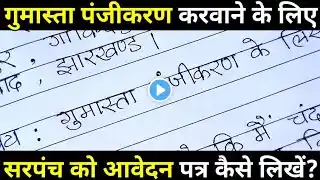 गुमास्ता पंजीकरण करवाने के लिए
झारखण्ड।
गुमास्ता पंजीकरण के लिए
कि मैं चंद
सरपंच को आवेदन पत्र कैसे लिखें?